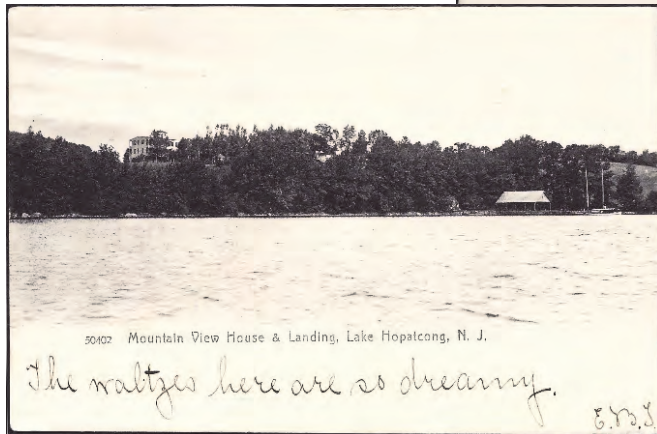 50402 Mountain View House & Landing, Lake Hopatcong, N. J.
The waltzes here are so dreamy.
E.B.T.